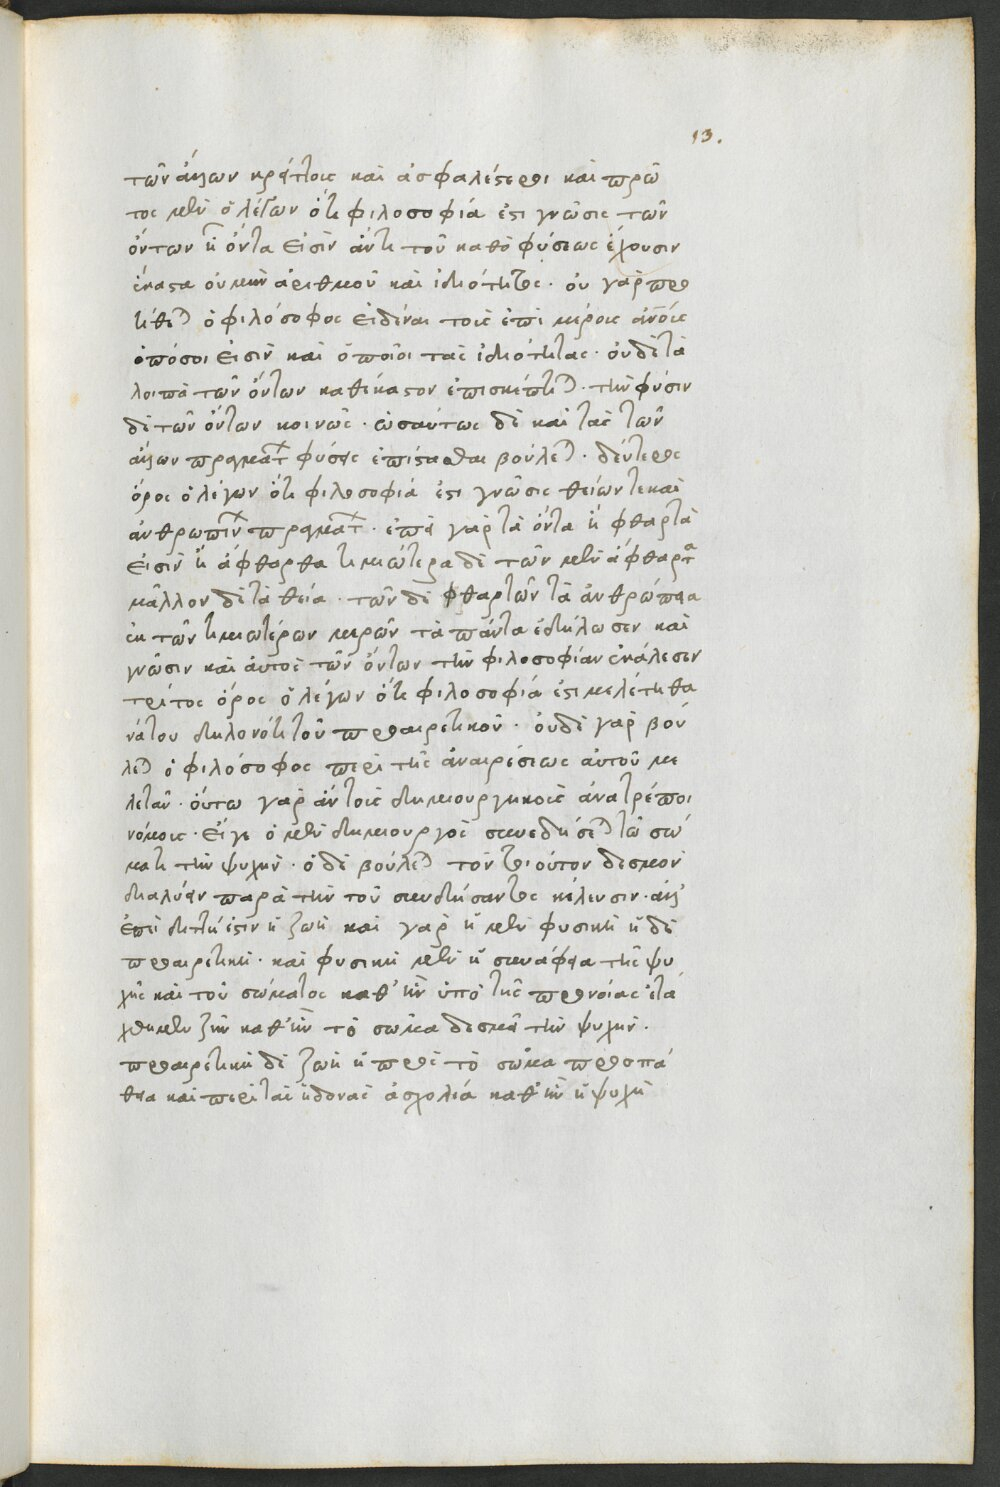 13.
τῶν ἄλλων κρείττοις καὶ ἀσφαλέστεροι καὶ πρῶ
τος μὲν ὁ λέγων ὅτι φιλοσοφία ἐστι γνῶσις τῶν
ὄντων ᾗ ὄντα εἰσὶν ἀντὶ τοῦ καθὸ φύσεως ἔχουσιν
ἕκαστα οὐ μὴν ἀριθμοῦ καὶ ἰδιότητος. οὐ γὰρ προ
τίθεται ὁ φιλόσοφος εἰδέναι τοὺς ἐπὶ μέρους ἀνους
ὁπόσοι εἰσὶν καὶ ὁποῖοι τὰς ἰδιότητας. οὐδὲ τὰ
λοιπὰ τῶν ὄντων καθέκαστον ἐπισκέπτεται. τὴν φύσιν
δὲ τῶν ὄντων κοινῶς. ὡσαύτως δὲ καὶ τὰς τῶν
ἄλλων πραγμάτων φύσεις ἐπίστασθαι βούλεται. δεύτερος
ὅρος ὁ λέγων ὅτι φιλοσοφία ἐστι γνῶσις θείων τε καὶ
ἀνθρωπίνων πραγμάτων. ἐπεὶ γὰρ τὰ ὄντα ἢ φθαρτὰ
εἰσὶν ἢ ἄφθαρτα τιμιώτερα δὲ τῶν μὲν ἀφθάρτων
μᾶλλον δὲ τὰ θεῖα. τῶν δὲ φθαρτῶν τὰ ἀνθρώπεια
ἐκ τῶν τιμιωτέρων μερῶν τὰ πάντα ἐδήλωσεν καὶ
γνῶσιν καὶ αὐτὸς τῶν ὄντων τὴν φιλοσοφίαν ἐκάλεσεν
τρίτος ὅρος ὁ λέγων ὅτι φιλοσοφία ἐστι μελέτη θα
νάτου δηλονότι τοῦ προαιρετικοῦ. οὐδὲ γὰρ βού
λεται ὁ φιλόσοφος περὶ τῆς ἀναιρέσεως αὐτοῦ με
λετᾶν. οὕτω γὰρ ἂν τοῖς δημιουργικοῖς ἀνατρέποι
νόμοις. εἴγε ὁ μὲν δημιουργὸς συνεδήσεται τῶ σώ
ματι τὴν ψυχὴν. ὁ δὲ βούλεται τὸν τοιοῦτον δεσμὸν
διαλύειν παρὰ τὴν τοῦ συνδήσαντος κέλευσιν. ἀλλ'
ἐπεὶ διττή ἐστιν ἡ ζωὴ καὶ γὰρ ἡ μὲν φυσικὴ ἡ δὲ
προαιρετικὴ. καὶ φυσικὴ μὲν ἡ συνάφεια τῆς ψυ
χῆς καὶ τοῦ σώματος καθ' ἣν ὑπὸ τῆς προνοίας ἐτά
χθημεν ζῆν καθ' ἣν τὸ σῶμα δεσμεῖ τὴν ψυχὴν.
προαιρετικὴ δὲ ζωὴ ἡ πρὸς τὸ σῶμα προσπά
θεια καὶ περὶ τὰς ἡδονὰς ἀσχολία καθ' ἣν ἡ ψυχὴ